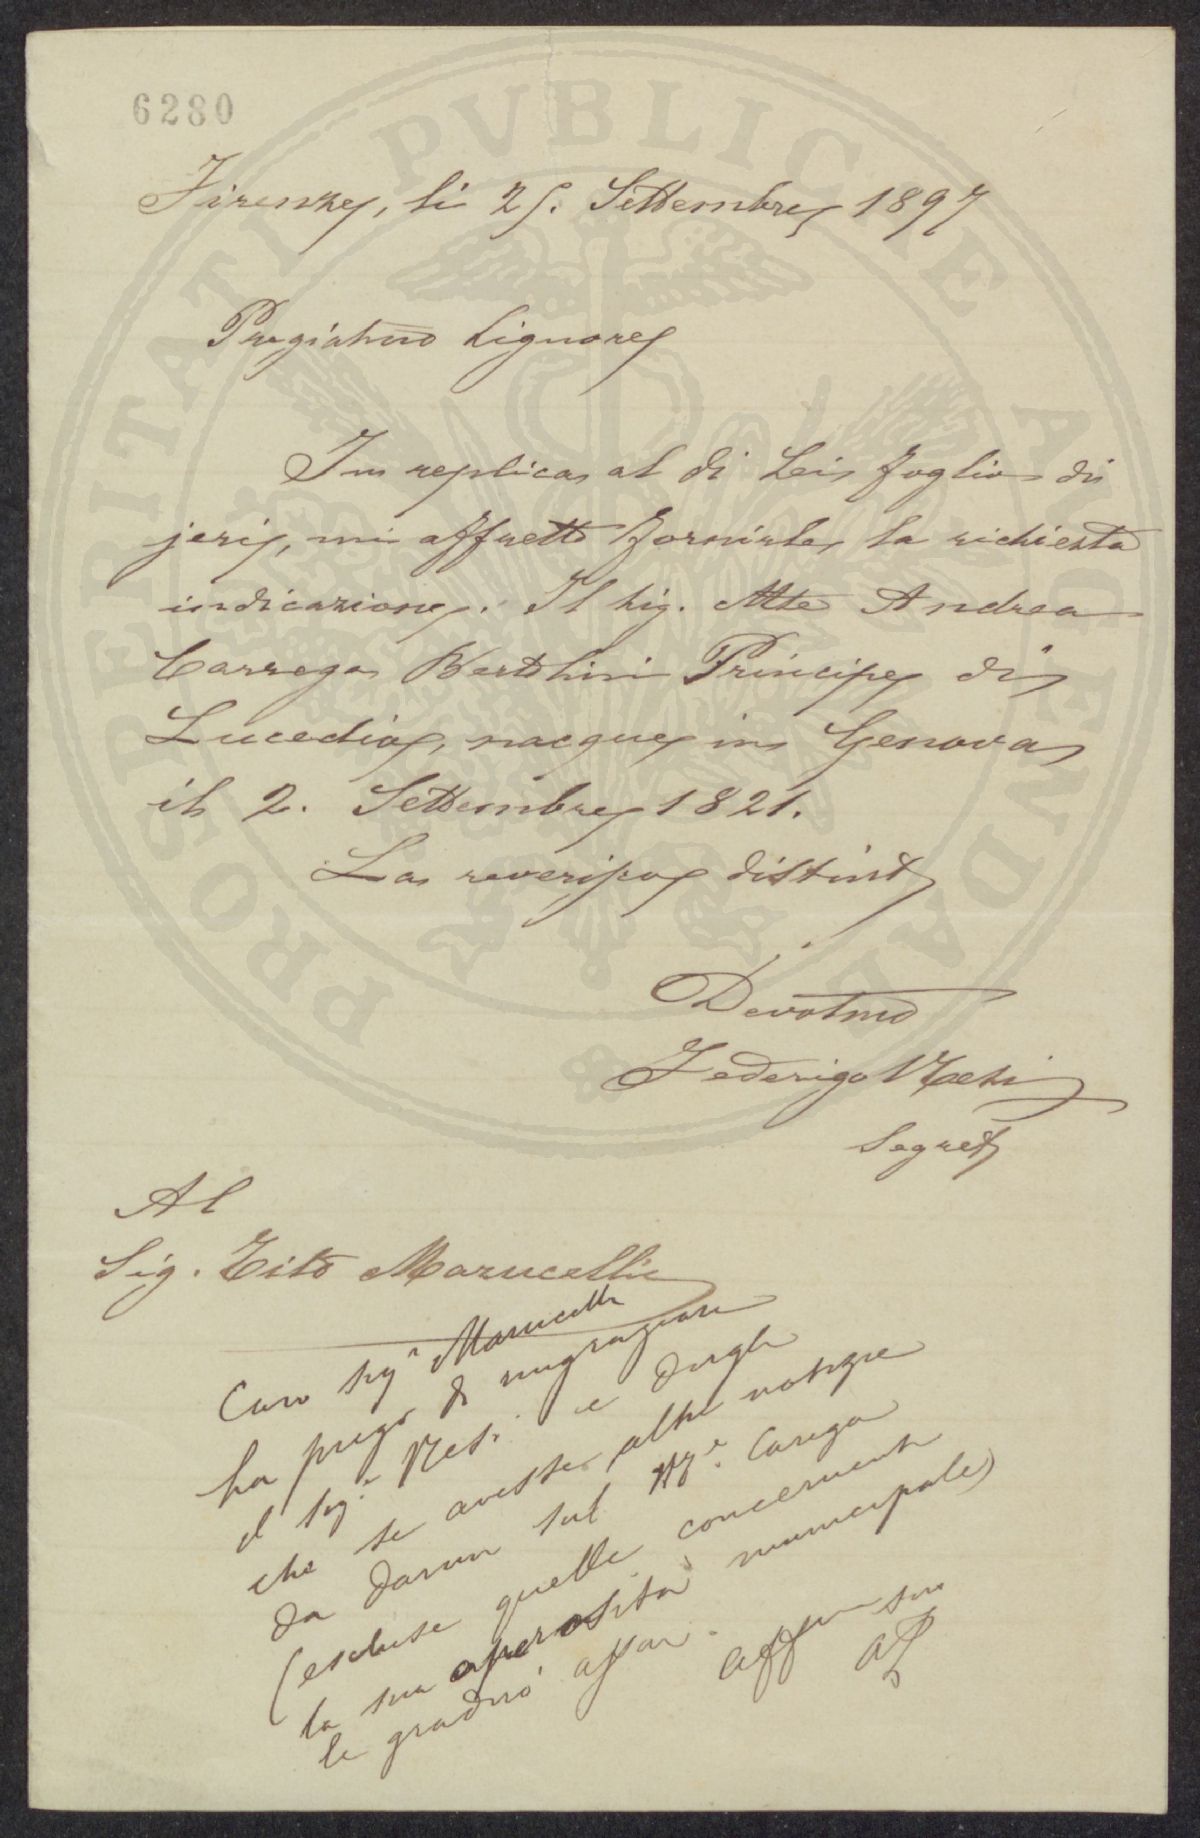 6280
Firenze, li 25. Settembre 1897
Pregiatmo Signore
In replica al di Lei foglio di
jeri, mi affretto fornirle la richiesta
indicazione. Il Sig. Mse Andrea
Carrega Bertolini Principe di
Lucedio, nacque in Genova
il 2. Settembre 1821.
La reverisco distint
Devotmo
Federigo Nesi
Segret
Al
Sig. Tito Marucelli
Caro Sigr Marucelli
La prego di ringraziare
il Sig. Nesi e dirgli
che se avesse altre notizie
da darmi sul Carega
(escluse quelle concernenti
la sua operosità municipale)
le gradirò assai.
Affmo suo
PROSPERITATI PVBLICAE AVGENDAE